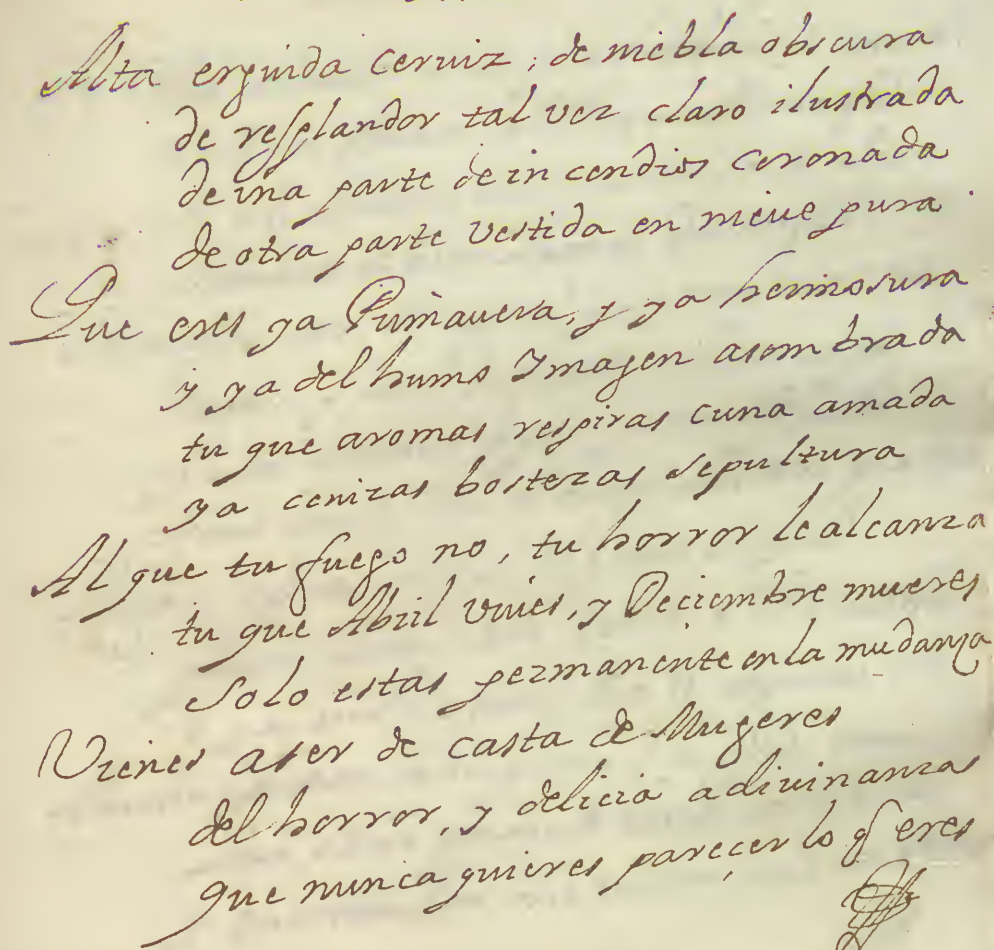 Alta erguida Ceruiz, de niebla obscura
de resplandor tal vez claro ilustrada
de vna parte de incendios Coronada
de otra parte Vestida en nieue pura
Que eres ya Primauera, y ya hermosura
y ya del humo Ymagen asombrada
tu que aromas respiras cuna amada
ya cenizas bostezas sepultura
Al que tu fuego no, tu horror le alcanza
tu que Abril viues, y Deciembre mueres
Solo estas permanente en la mudanza
Vienes a ser de casta de Mugeres
del horror, y delicia adiuinanzas
que nunca quieres parecer lo q eres